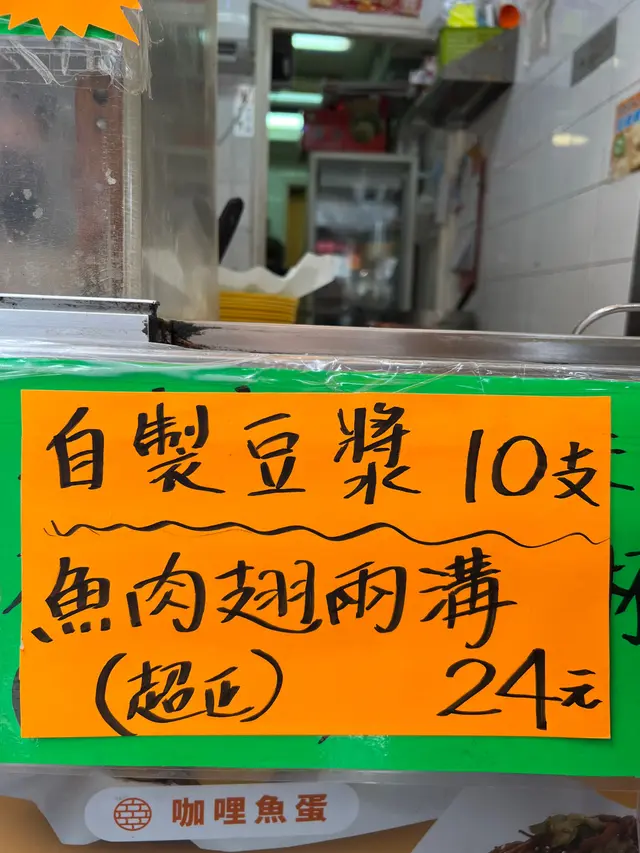 自製豆漿 10支
魚肉翅兩溝
(超正) 24元
咖哩魚蛋